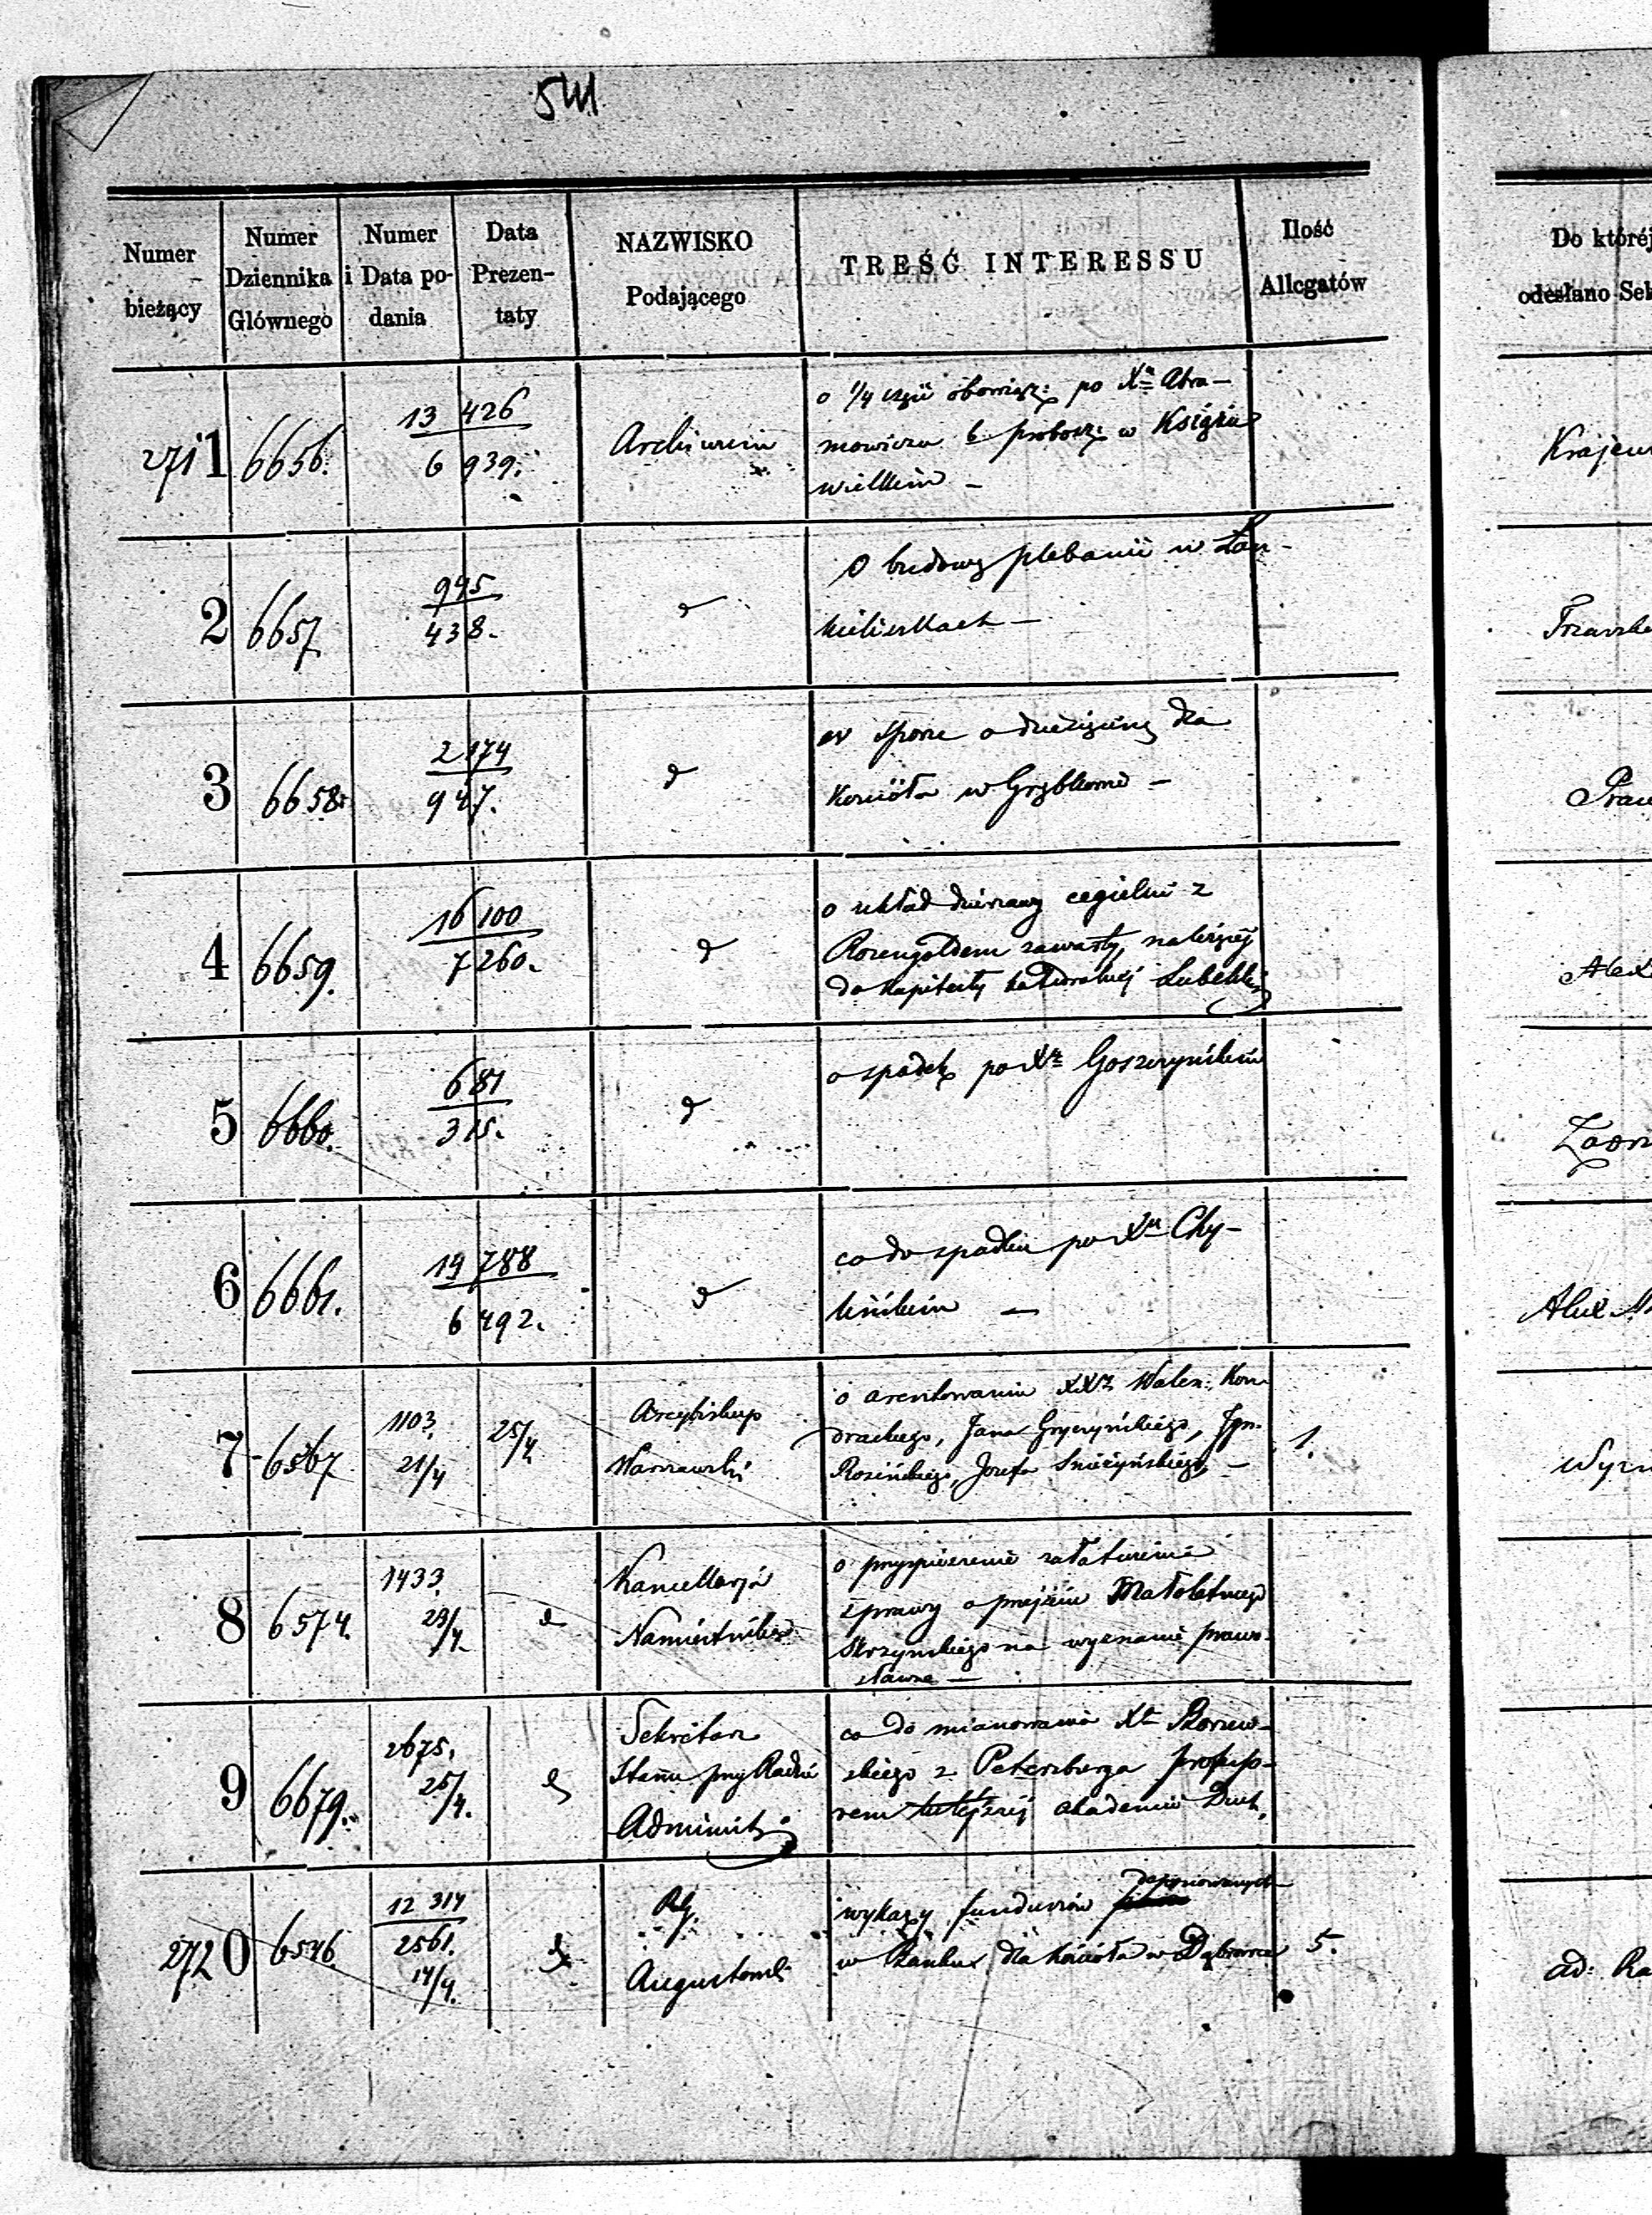 541
Numer bieżący
Numer Dziennika Głównego
Numer i Data podania
Data Prezentaty
NAZWISKO Podającego
TREŚĆ INTERESSU
Ilość Allegatów
Do któréj
odesłano Sek
2711 6656. 13 426
6 939.
Archiwum
o 1/4 części obowiąz: po Xu Abra-
mowiczu b. probosz: w Książu
wielkim -
Krajew
2 6657 995
438.
d
O budowę plebanii w Łan-
kieliszkach -
3 6658. 2 174
947.
d
w sporze o dziesięcinę dla
Kościoła w Grzybkowie -
Praw
4 6659. 16 100
7 260.
d
o układ dzierżawy cegielni z
Rozengoldem zawarty, należącej
do Kapituły katedralnej Lubelskiej
Alex
5 6660. 681
315.
d
o spadek po Xu Goszczyńskim
6 6661. 19 788
6 492.
d
co do spadku po Xu Chy-
lińskim -
Alex
7 6567 1103.
21/4
25/4
Arcybiskup
Warszawski
o aresztowaniu XXy Walen: Kon
drackiego, Jana Gryczyńskiego, Ign.
Rosińskiego, Józefa Śnieżyńskiego -
1.
8 6574. 1433.
23/4.
d
Kancellarja
Namiestnika
o przyspieszenie załatwienia
sprawy o przejściu Małoletniego
Skrzyńskiego na wyznanie prawo-
sławne -
9 6679. 2675.
25/4.
d
Sekretarz
Stanu przy Radzie
Administ.
co do mianowania Xa Borzew-
skiego z Petersburga profeso-
rem tutejszej akademii Duch.
2720 6546. 12 314
2561.
14/4.
d
Rg.
Augustowski
deponowanych
wykazy funduszów
w Banku dla kościoła w Dąbrówce
5.
ad: Ra